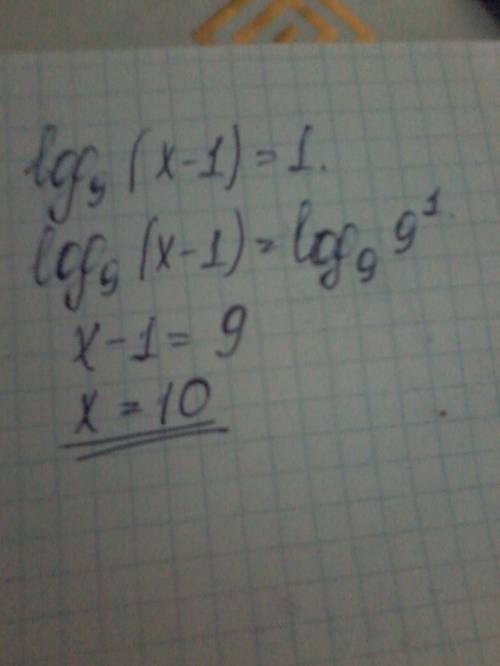 log₉ (x-1) = 1.
log₉ (x-1) = log₉ 9¹.
x-1 = 9
x = 10